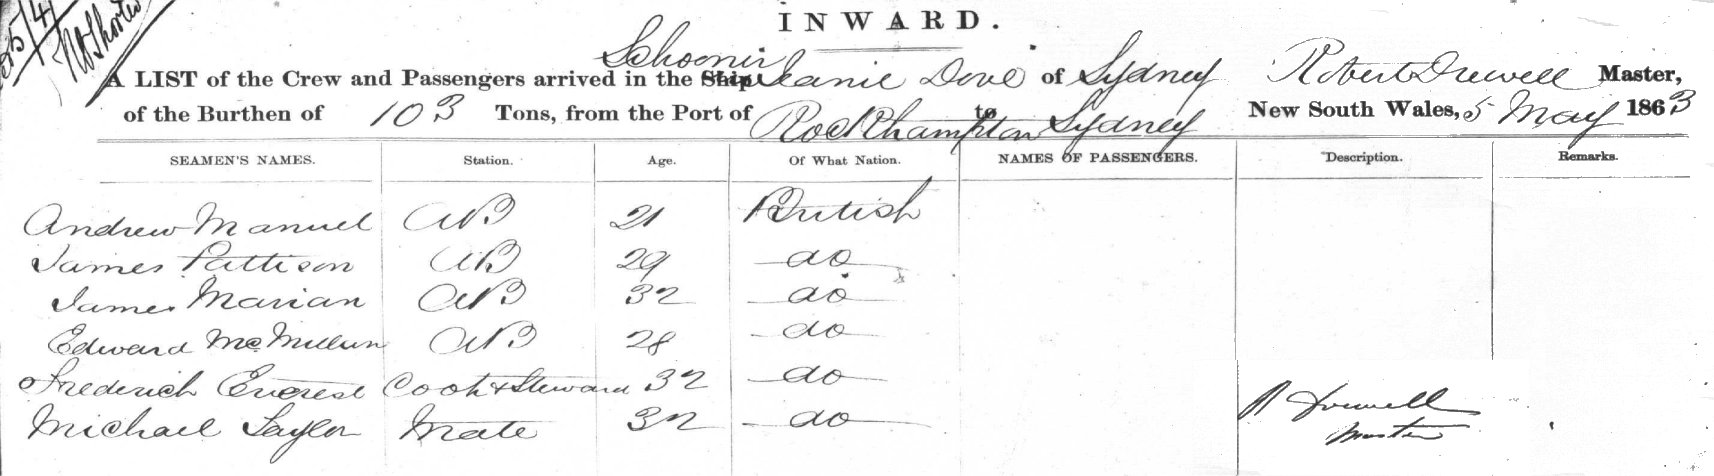 INWARD.
Schooner
A LIST of the Crew and Passengers arrived in the Ship Jeanie Dove of Sydney Robert Drewell Master,
of the Burthen of 103 Tons, from the Port of Rockhampton to Sydney New South Wales, 5 May 1863
SEAMEN'S NAMES. Station. Age. Of What Nation. NAMES OF PASSENGERS. Description. Remarks.
Andrew Manuel AB 21 British
James Pattison AB 29 do
James Marian AB 32 do
Edward McMillun AB 28 do
Frederick Everest Cook & Steward 32 do
Michael Taylor Mate 32 do
R Drewell
Master